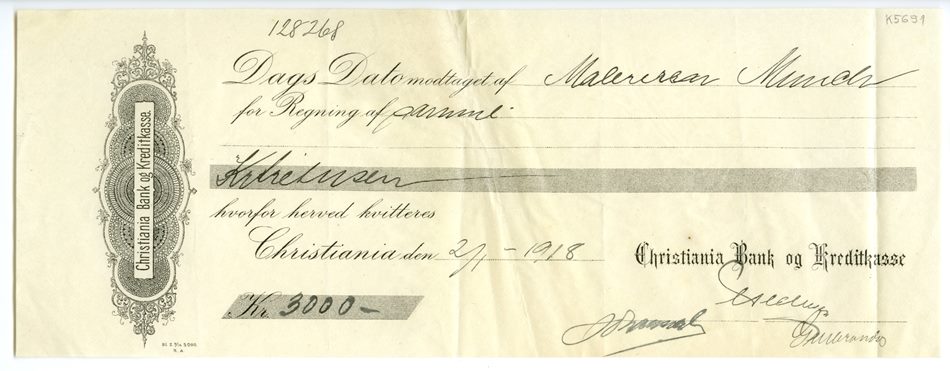 128268
K5691
Dags Dato modtaget af Maleren Munch
for Regning af samme
Kr tretusen
hvorfor herved kvitteres
Christiania den 2/1 - 1918
Christiania Bank og Kreditkasse
Kr. 3000 -
Christiania Bank og Kreditkasse.